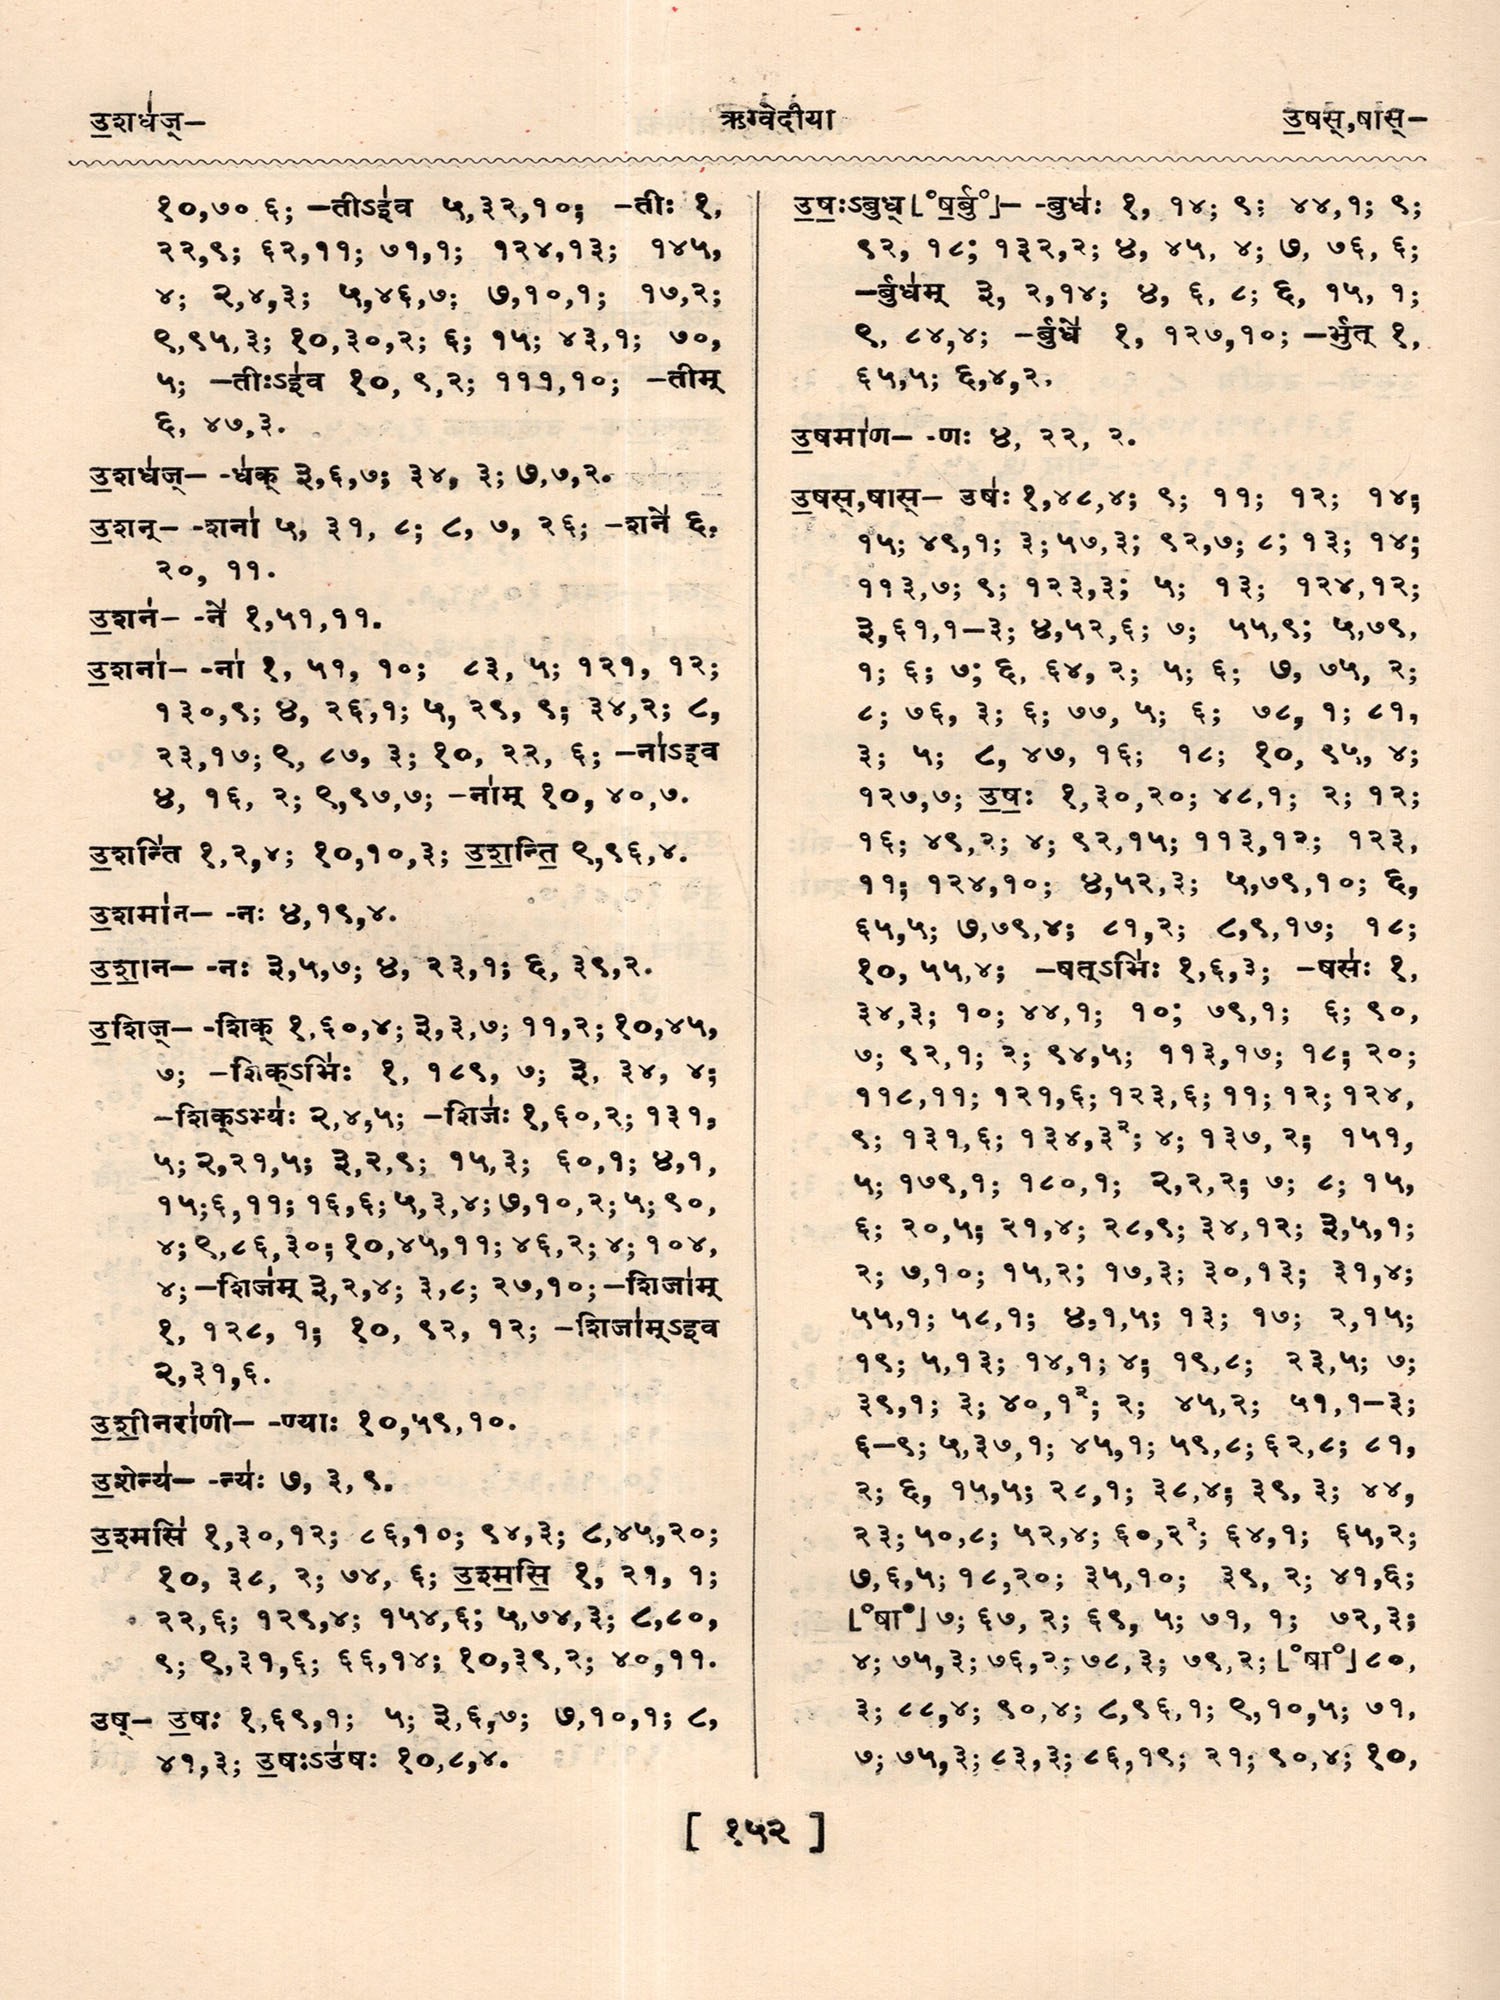 उ॒शध॑ज्–
ऋग्वेदीया
उ॒षस्,षास्–
१०,७० ६; –तीऽइ॑व ५,३२,१०; –तीः १,
२२,९; ६२,११; ७१,१; १२४,१३; १४५,
४; २,४,३; ५,४६,७; ७,१०,१; १७,२;
९,९५,३; १०,३०,२; ६; १५; ४३,१; ७०,
५; –तीःऽइ॑व १०, ९,२; १११,१०; –तीम्
६, ४७,३.
उ॒शध॑ज्– -ध॑क् ३,६,७; ३४, ३; ७,७,२.
उ॒शन्– -शना॑ ५, ३१, ८; ८, ७, २६; –शने॑ ६,
२०, ११.
उ॒शन॑– -ने॑ १,५१,११.
उ॒शना॑– -ना॑ १, ५१, १०; ८३, ५; १२१, १२;
१३०,९; ४, २६,१; ५, २९, ९; ३४,२; ८,
२३,१७; ९, ८७, ३; १०, २२, ६; –ना॑ऽइव
४, १६, २; ९,९७,७; –ना॑म् १०, ४०,७.
उ॒शन्ति॑ १,२,४; १०,१०,३; उ॒श॒न्ति॒ ९,९६,४.
उ॒शमा॑न– -नः ४,१९,४.
उ॒शा॒न– -नः ३,५,७; ४, २३,१; ६, ३९,२.
उ॒शिज्– -शिक् १,६०,४; ३,३,७; ११,२; १०,४५,
७; –शिक्ऽभिः॑ १, १८९, ७; ३, ३४, ४;
–शिक्ऽभ्यः॑ २,४,५; –शिजः॑ १,६०,२; १३१,
५; २,२१,५; ३,२,९; १५,३; ६०,१; ४,१,
१५;६,११; १६,६; ५,३,४; ७,१०,२; ५; ९०,
४; ९,८६,३०; १०,४५,११; ४६,२; ४; १०४,
४; –शिज॑म् ३,२,४; ३,८; २७,१०; –शिजा॑म्
१, १२८, १; १०, ९२, १२; –शिजा॑म्ऽइव
२,३१,६.
उ॒शी॒नरा॑णी– -ण्याः १०,५९,१०.
उ॒शेन्य॑– -न्यः॑ ७, ३, ९.
उ॒श्मसि॑ १,३०,१२; ८६,१०; ९४,३; ८,४५,२०;
१०, ३८, २; ७४, ६; उ॒श्म॒सि॒ १, २१, १;
२२,६; १२९,४; १५४,६; ५,७४,३; ८,८०,
९; ९,३१,६; ६६,१४; १०,३९,२; ४०,११.
उष्– उ॒षः १,६९,१; ५; ३,६,७; ७,१०,१; ८,
४१,३; उ॒षःऽउ॑षः १०,८,४.
उ॒षः॒ऽबुध् ⌊°ष॒र्बु°⌋– -बुधः॑ १, १४; ९; ४४,१; ९;
९२, १८; १३२,२; ४, ४५, ४; ७, ७६, ६;
–र्बुध॑म् ३, २,१४; ४, ६, ८; ६, १५, १;
९, ८४,४; –र्बुधे॑ १, १२७,१०; –र्भुत् १,
६५,५; ६,४,२.
उ॒षमा॑ण– -णः ४, २२, २.
उ॒षस्,षास्– उषः॑ १,४८,४; ९; ११; १२; १४;
१५; ४९,१; ३;५७,३; ९२,७; ८; १३; १४;
११३,७; ९; १२३,३; ५; १३; १२४,१२;
३,६१,१–३; ४,५२,६; ७; ५५,९; ५,७९,
१; ६; ७; ६, ६४, २; ५; ६; ७, ७५, २;
८; ७६, ३; ६; ७७, ५; ६; ७८, १; ८१,
३; ५; ८, ४७, १६; १८; १०, ९५, ४;
१२७,७; उ॒षः॒ १,३०,२०; ४८,१; २; १२;
१६; ४९,२; ४; ९२,१५; ११३,१२; १२३,
११; १२४,१०; ४,५२,३; ५,७९,१०; ६,
६५,५; ७,७९,४; ८१,२; ८,९,१७; १८;
१०, ५५,४; –षत्ऽभिः॑ १,६,३; –षसः॑ १,
३४,३; १०; ४४,१; १०; ७९,१; ६; ९०,
७; ९२,१; २; ९४,५; ११३,१७; १८; २०;
११८,११; १२१,६; १२३,६; ११; १२; १२४,
९; १३१,६; १३४,३²; ४; १३७, २; १५१,
५; १७९,१; १८०,१; २,२,२; ७; ८; १५,
६; २०,५; २१,४; २८,९; ३४,१२; ३,५,१;
२; ७,१०; १५,२; १७,३; ३०,१३; ३१,४;
५५,१; ५८,१; ४,१,५; १३; १७; २,१५;
१९; ५,१३; १४,१; ४; १९,८; २३,५; ७;
३९,१; ३; ४०,१²; २; ४५,२; ५१,१–३;
६–९; ५,३७,१; ४५,१; ५९,८; ६२,८; ८१,
२; ६, १५,५; २८,१; ३८,४; ३९, ३; ४४,
२३; ५०,८; ५२,४; ६०,२²; ६४,१; ६५,२;
७,६,५; १८,२०; ३५,१०; ३९, २; ४१,६;
⌊°षा°⌋ ७; ६७, २; ६९, ५; ७१, १; ७२,३;
४; ७५,३; ७६,२; ७८,३; ७९,२; ⌊°षा°⌋ ८०,
३; ८८,४; ९०,४; ८,९६,१; ९,१०,५; ७१,
७; ७५,३; ८३,३; ८६,१९; २१; ९०,४; १०,
[ १५२ ]